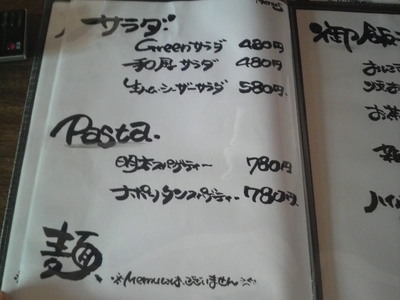 サラダ
Greenサラダ 480円
和風サラダ 480円
生ハムシーザーサラダ 580円
Pasta.
明太スパゲティー 780円
ナポリタンスパゲティー 780円
麺
※Memuはございません※
御飯